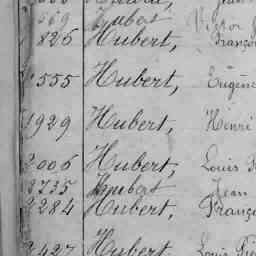 569 Hubert Victor
826 Hubert, Franço
1555 Hubert, Eugène
1929 Hubert, Henri
2006 Hubert, Louis
2735 Humbert Jean
2284 Hubert, Franço
2427 Hubert, Louis